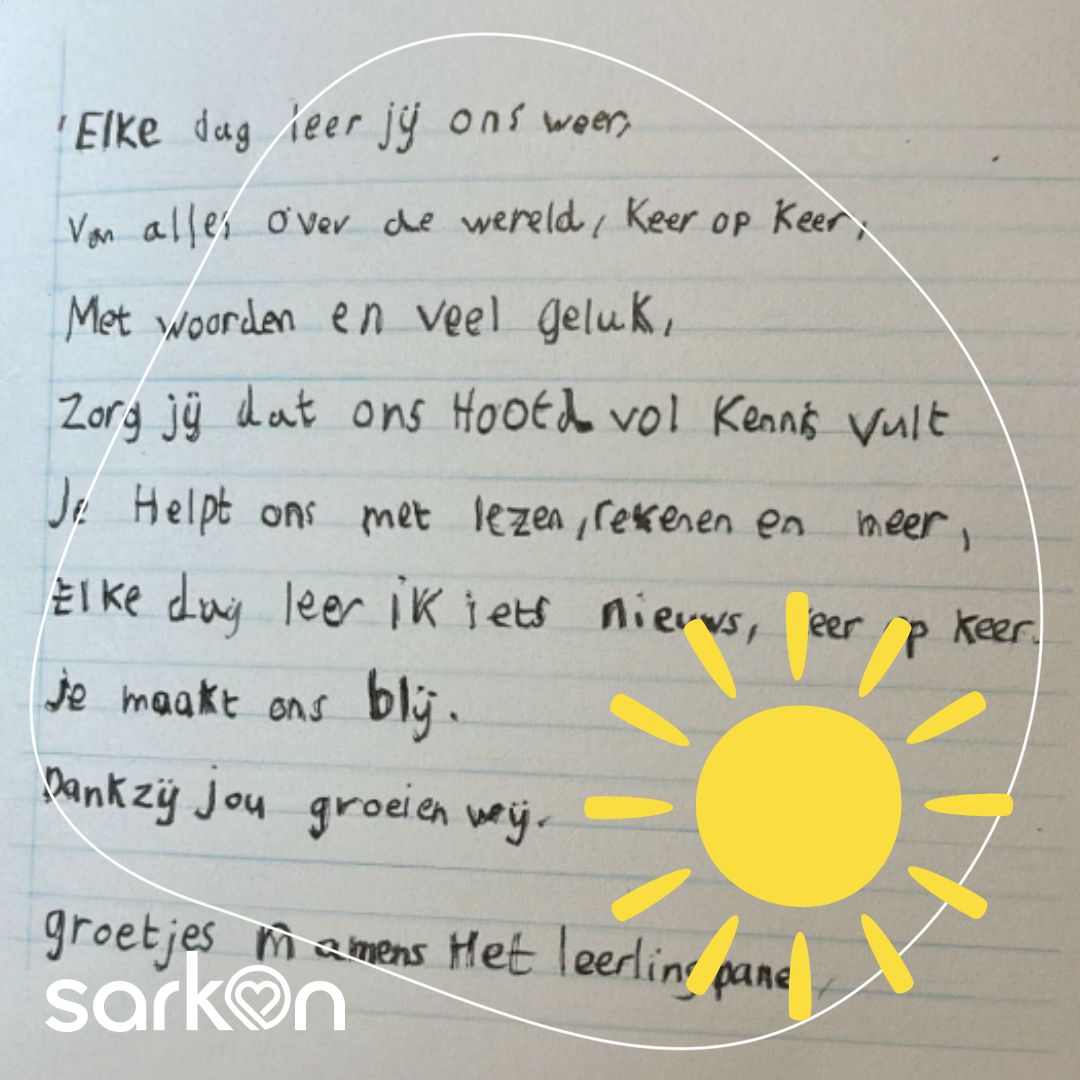 Elke dag leer jij ons weer,
Van alles over de wereld, keer op keer,
Met woorden en veel geluk,
Zorg jij dat ons Hootd vol kennis vult
Je Helpt ons met lezen, rekenen en meer,
Elke dag leer ik iets nieuws, keer op keer.
Je maakt ons blij.
Dankzij jou groeien wij.
groetjes namens Het leerlingpanel
sarkon